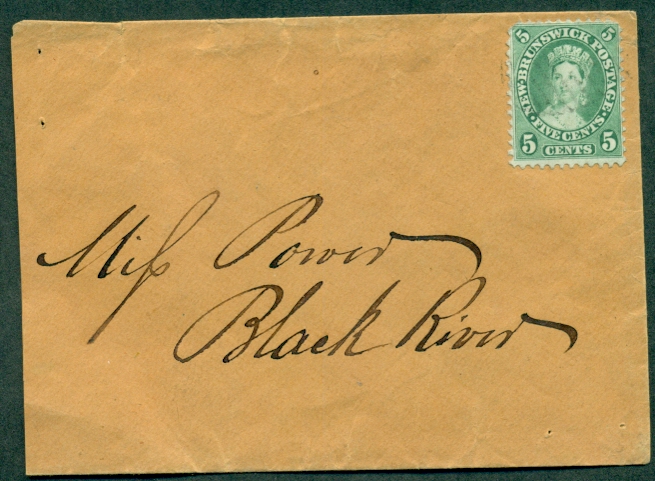 5 5
NEW·BRUNSWICK POSTAGE·
·FIVE CENTS·
5 CENTS 5
Miſs Power
Black River